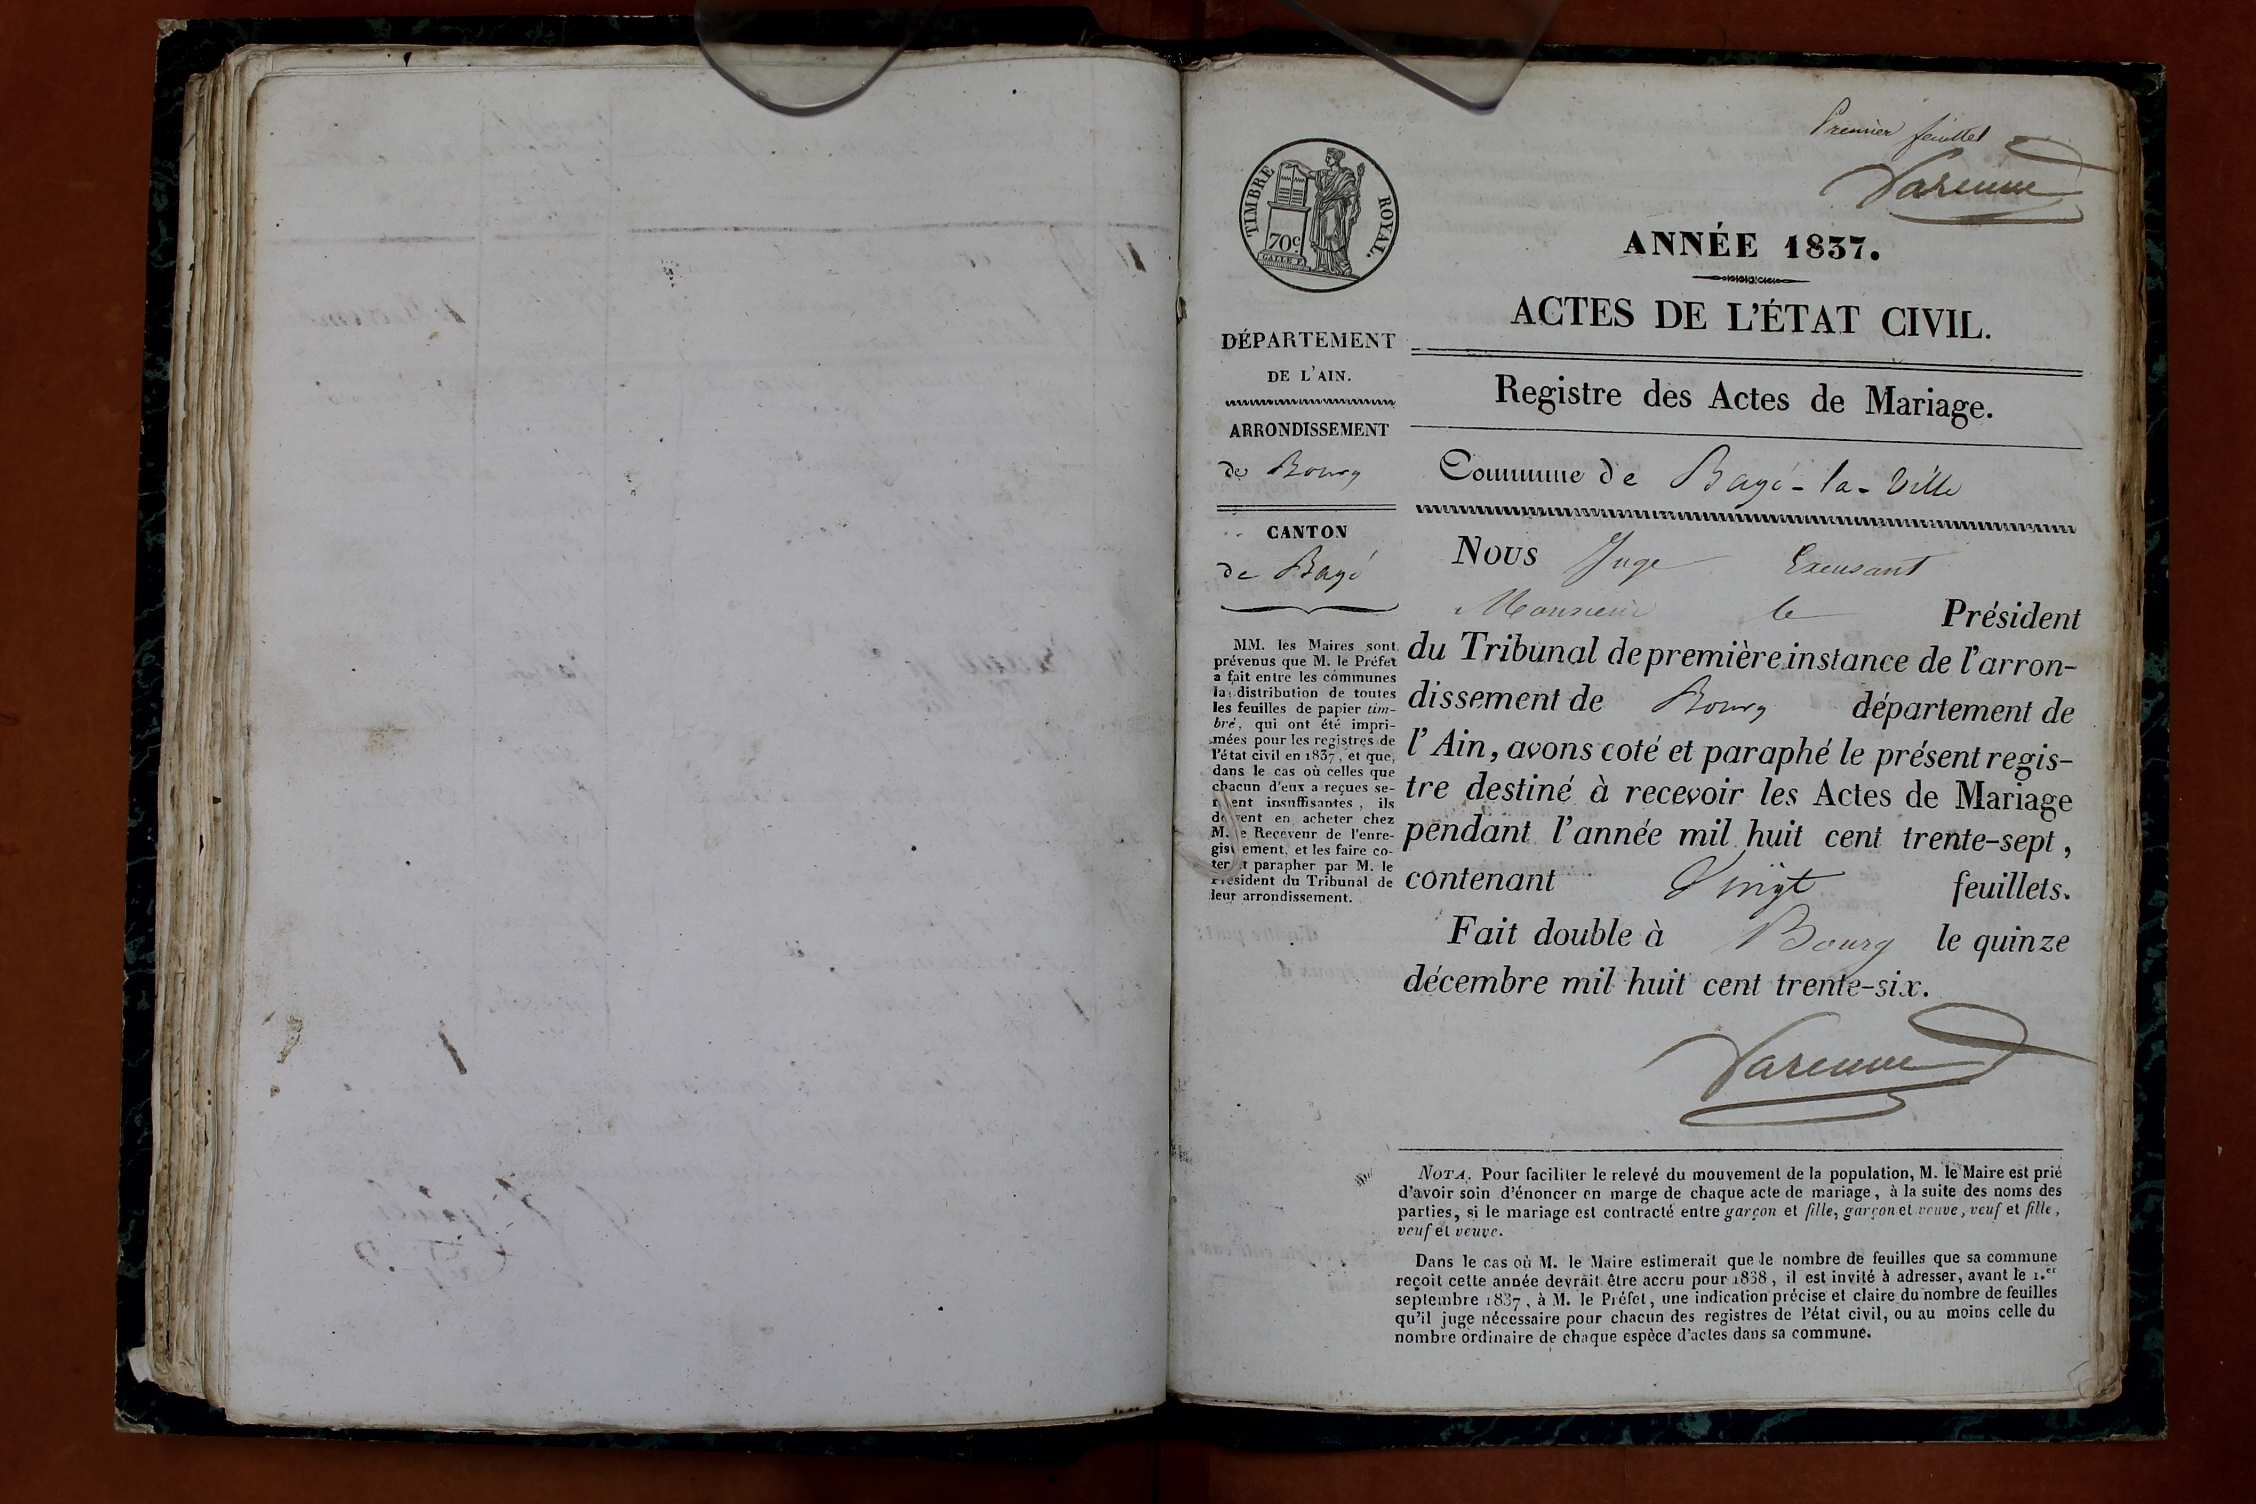 Premier feuillet
Varenne
TIMBRE ROYAL.
70c.
GALLE F.
ANNÉE 1837.
ACTES DE L'ÉTAT CIVIL.
DÉPARTEMENT
DE L'AIN.
ARRONDISSEMENT
de Bourg
CANTON
de Bagé
MM. les Maires sont
prévenus que M. le Préfet
a fait entre les communes
la distribution de toutes
les feuilles de papier tim-
bré, qui ont été impri-
mées pour les registres de
l'état civil en 1837, et que,
dans le cas où celles que
chacun d'eux a reçues se-
raient insuffisantes, ils
doivent en acheter chez
M. le Receveur de l'enre-
gistrement, et les faire co-
ter et parapher par M. le
Président du Tribunal de
leur arrondissement.
Registre des Actes de Mariage.
Commune de Bagé-la-Ville
Nous Juge Excusant
Monsieur le Président
du Tribunal de première instance de l'arron-
dissement de Bourg département de
l'Ain, avons coté et paraphé le présent regis-
tre destiné à recevoir les Actes de Mariage
pendant l'année mil huit cent trente-sept,
contenant Vingt feuillets.
Fait double à Bourg le quinze
décembre mil huit cent trente-six.
Varenne
NOTA. Pour faciliter le relevé du mouvement de la population, M. le Maire est prié
d'avoir soin d'énoncer en marge de chaque acte de mariage, à la suite des noms des
parties, si le mariage est contracté entre garçon et fille, garçon et veuve, veuf et fille,
veuf et veuve.
Dans le cas où M. le Maire estimerait que le nombre de feuilles que sa commune
reçoit cette année devrait être accru pour 1838, il est invité à adresser, avant le 1.er
septembre 1837, à M. le Préfet, une indication précise et claire du nombre de feuilles
qu'il juge nécessaire pour chacun des registres de l'état civil, ou au moins celle du
nombre ordinaire de chaque espèce d'actes dans sa commune.